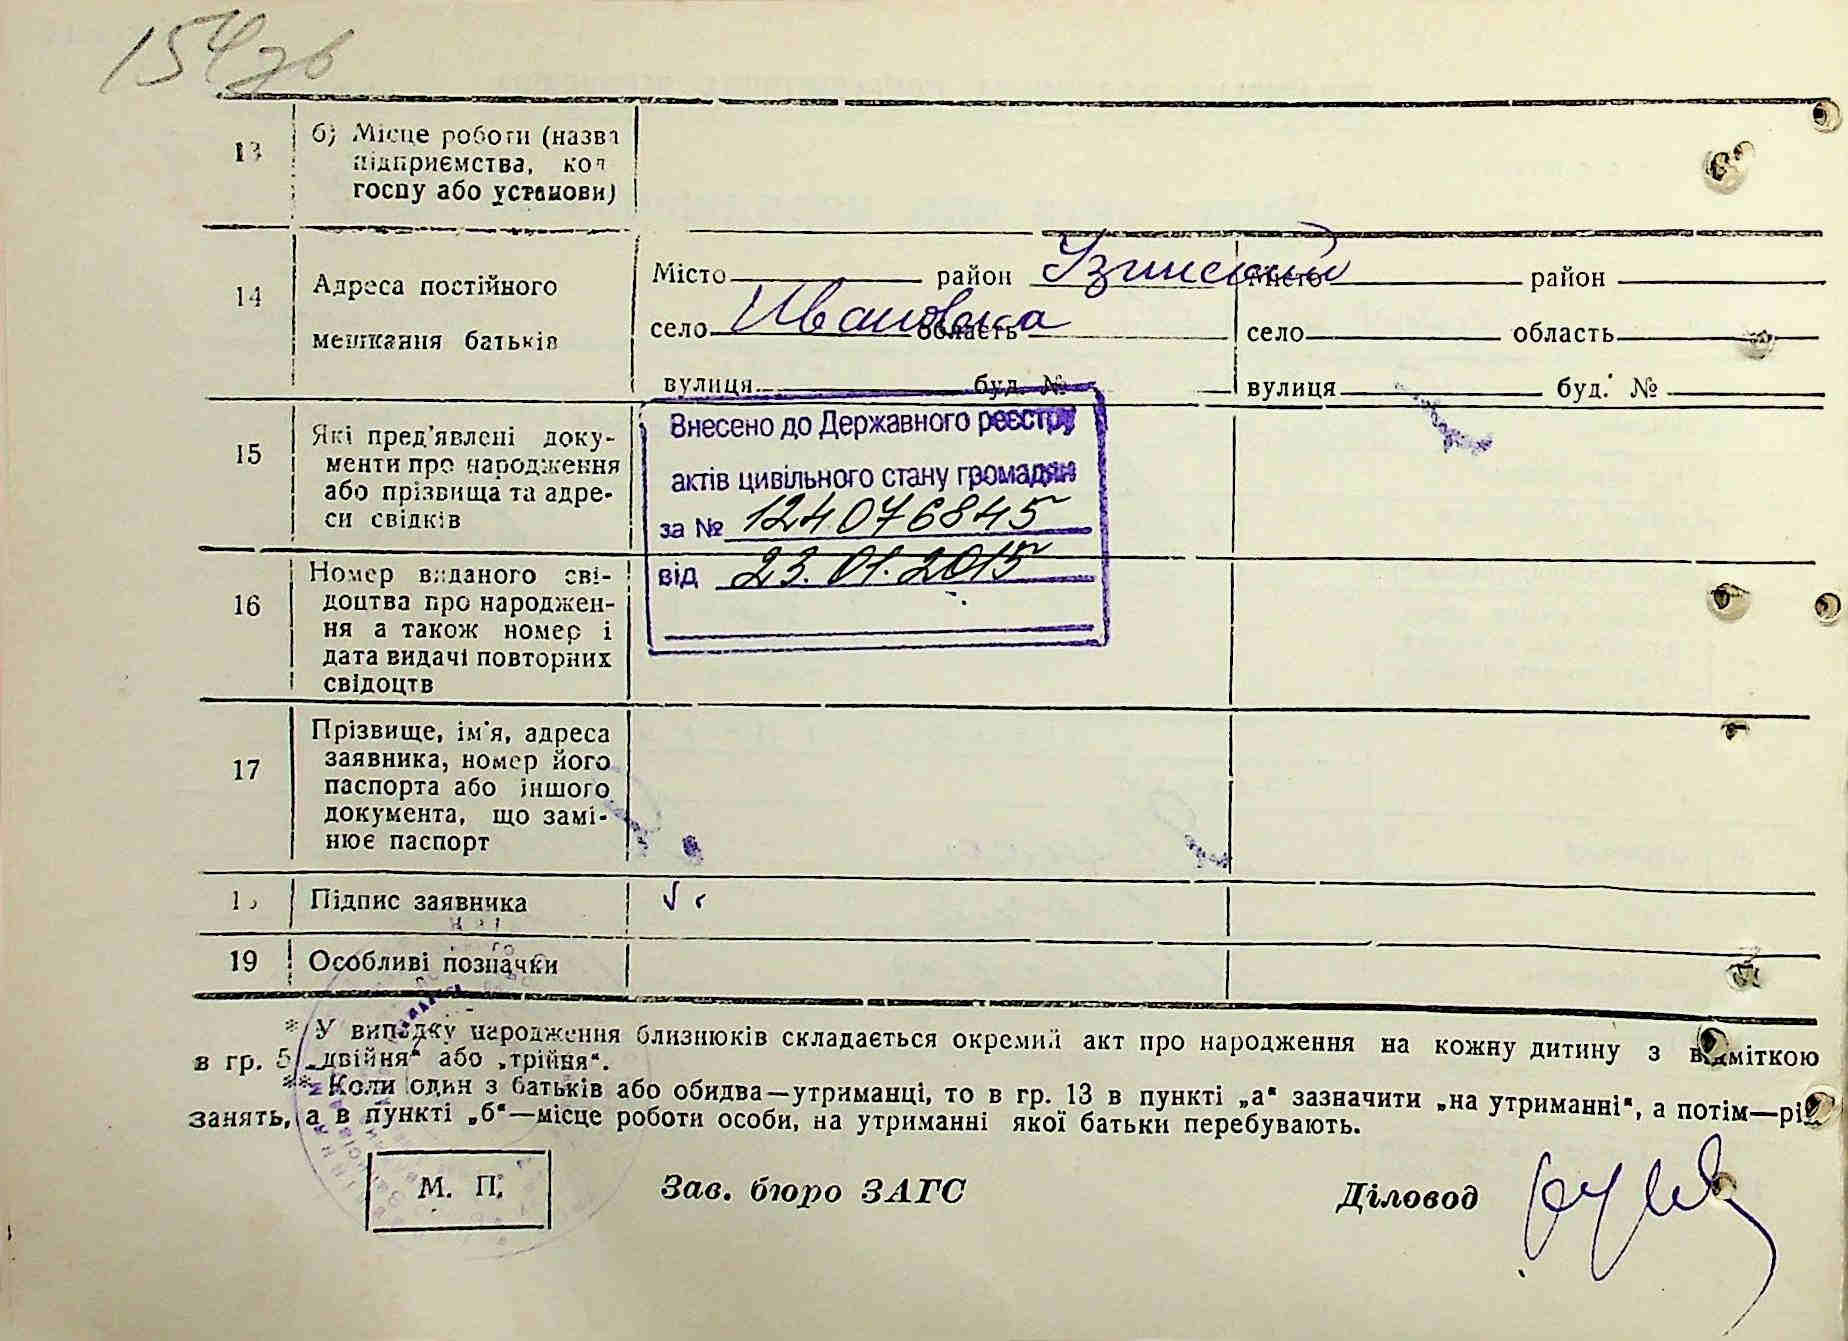 154зв
13
б) Місце роботи (назва
підприємства, кол
госпу або установи)
14
Адреса постійного
мешкання батьків
Місто район Узинский
село Ивановка область
вулиця буд. №
Місто район
село область
вулиця буд. №
15
Які пред'явлені доку-
менти про народження
або прізвища та адре-
си свідків
Внесено до Державного реєстру
актів цивільного стану громадян
за № 124076845
від 23.01.2015
16
Номер виданого сві-
доцтва про народжен-
ня а також номер і
дата видачі повторних
свідоцтв
17
Прізвище, ім'я, адреса
заявника, номер його
паспорта або іншого
документа, що замі-
нює паспорт
Підпис заявника
19
Особливі позначки
* У випадку народження близнюків складається окремий акт про народження на кожну дитину з відміткою
в гр. 5 „двійня“ або „трійня“.
** Коли один з батьків або обидва—утриманці, то в гр. 13 в пункті „а“ зазначити „на утриманні“, а потім—рід
занять, а в пункті „б“—місце роботи особи, на утриманні якої батьки перебувають.
М. П.
Зав. бюро ЗАГС
Діловод